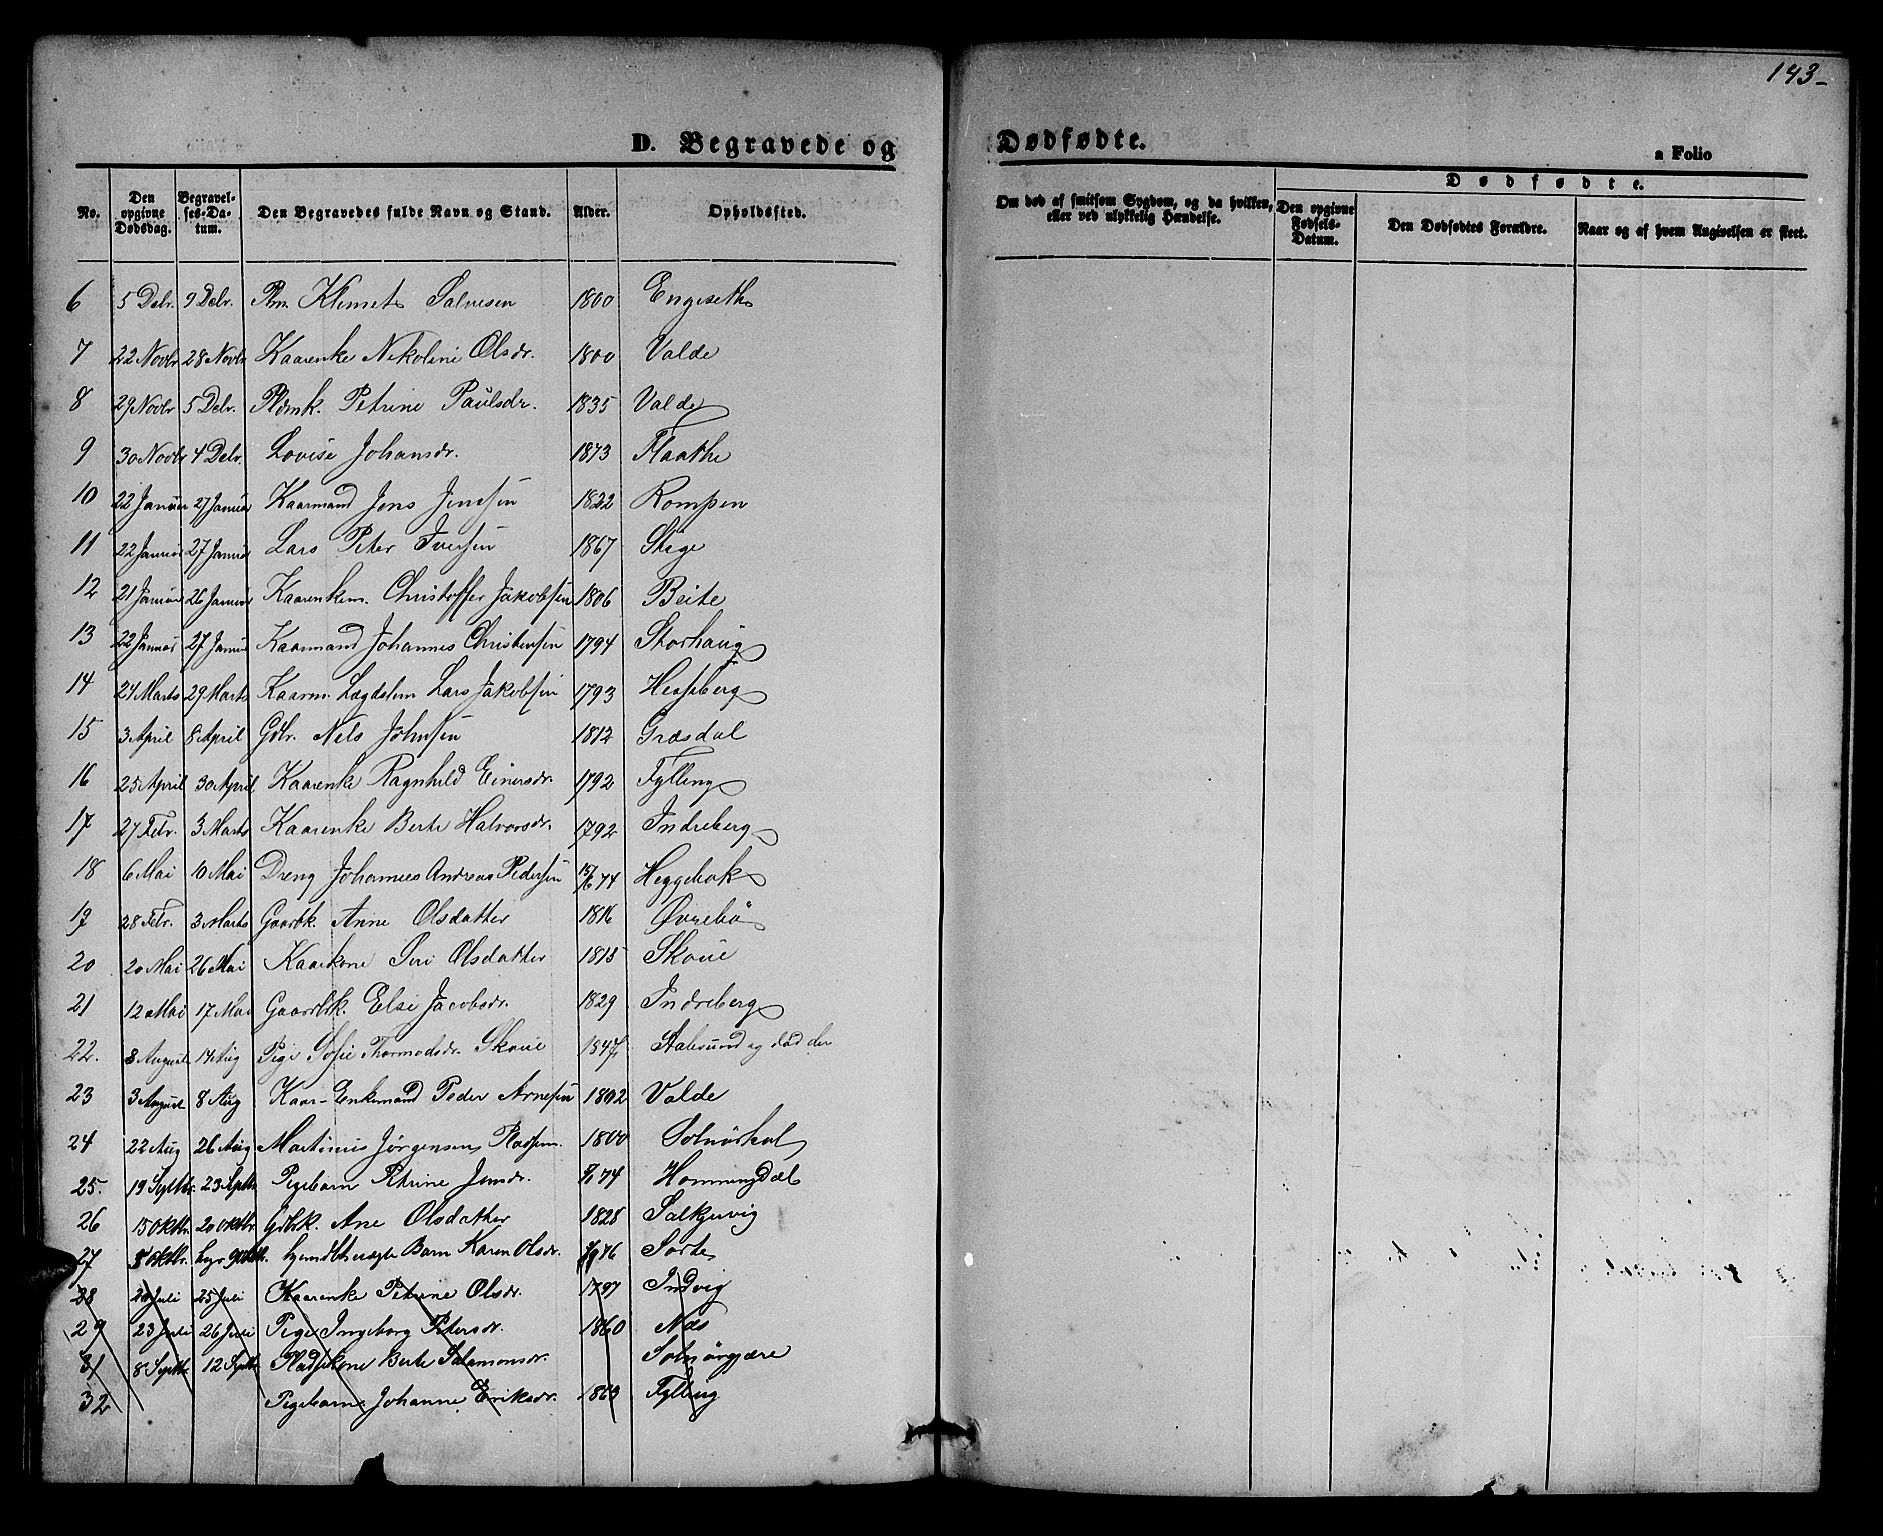 143-
D. Begravede og Dødfødte.
a Folio
No. Den opgivne Dødsdag. Begravelses-Datum. Den Begravedes fulde Navn og Stand. Alder. Opholdssted. Om død af smitsom Sygdom, og da hvilken, eller ved ulykkelig Hændelse. Dødfødte. Den opgivne Fødsels-Datum. Den Dødfødtes Forældre. Naar og af hvem Angivelsen er skeet.
6 5 Debr. 9 Debr. Klemet Salvesen 1800 Engeseth
7 22 Novbr 28 Novbr Kaarenke Nikoline Olsdr. 1800 Valde
8 29 Novbr 5 Debr. Petrine Paulsdr. 1835 Valde
9 30 Novbr 4 Debr. Lovise Johansdr. 1873 Flaathe
10 22 Januar 27 Januar Kaarmand Jens Jensen 1822 Rompen
11 22 Januar 27 Januar Lars Peter Iversen 1867 Stige
12 21 Januar 26 Januar Kaarenkem. Christoffer Jakobsen 1806 Beite
13 22 Januar 27 Januar Kaarmand Johannes Christensen 1794 Storhaug
14 24 Marts 29 Marts Kaarm. Lægdslem Lars Jakobsen 1793 Hessberg
15 3 April 8 April Gbr. Nels Johnsen 1812 Græsdal
16 25 April 30 April Kaarenke Ragnhild Einersdr. 1792 Fylling
17 27 Febr. 3 Marts Kaarenke Berte Halvorsdr. 1792 Indreberg
18 6 Mai 10 Mai Dreng Johannes Andreas Pedersen 74 Heggebak
19 28 Febr. 3 Marts Gaardbk. Anne Olsdatter 1816 Øvrebø
20 20 Mai 26 Mai Kaarkone Siri Olsdatter 1815 Skoue
21 12 Mai 17 Mai Gaardbk. Else Jacobsdr. 1829 Indreberg
22. 8 August 14 Aug Pige Sofie Thormodsdr. Skoue 1847 Aalesund og død der
23 3 August 8 Aug Kaar-Enkemand Peder Arnesen 1802 Valde
24 22 Aug 26 Aug Martinus Jørgensen Pladsm. 1800 Solnørkal
25. 19 Septbr. 23 Septbr Pigebarn Petrine Jensdr. 74 Hommingdal
26 15 Oktbr. 20 Oktbr Gdbk. Ane Olsdatter 1828 Salkjervig
27 8 Oktbr. hjemdøbt uægte Barn Karen Olsdr. 76 Sorte
28 20 Juli 25 Juli Kaarenke Petrine Olsdr. 1797 Indvig
29 23 Juli 26 Juli Pige Ingeborg Petersdr. 1860 Næs
31 8 Septbr 12 Septbr Pladsekone Berte Salamonsdr. Solnørgjære
32 Pigebarn Johanne Eriksdr. 1863 Fylling